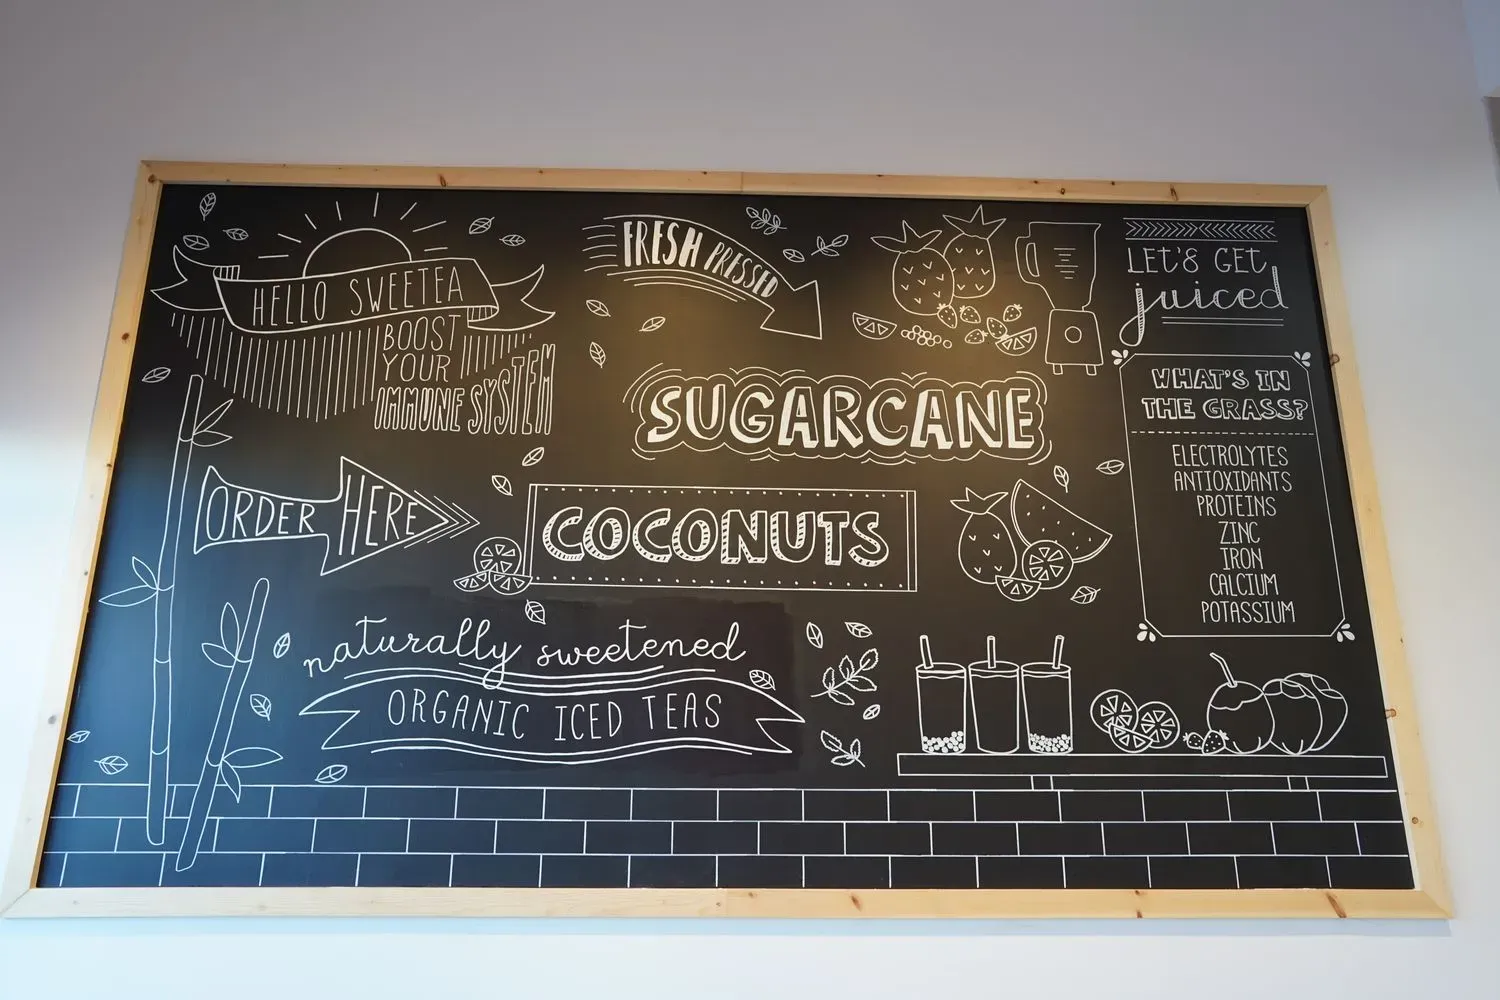 HELLO SWEETEA
BOOST
YOUR
IMMUNE SYSTEM
FRESH PRESSED
SUGARCANE
ORDER HERE
COCONUTS
naturally sweetened
ORGANIC ICED TEAS
LET'S GET
juiced
WHAT'S IN
THE GRASS?
ELECTROLYTES
ANTIOXIDANTS
PROTEINS
ZINC
IRON
CALCIUM
POTASSIUM